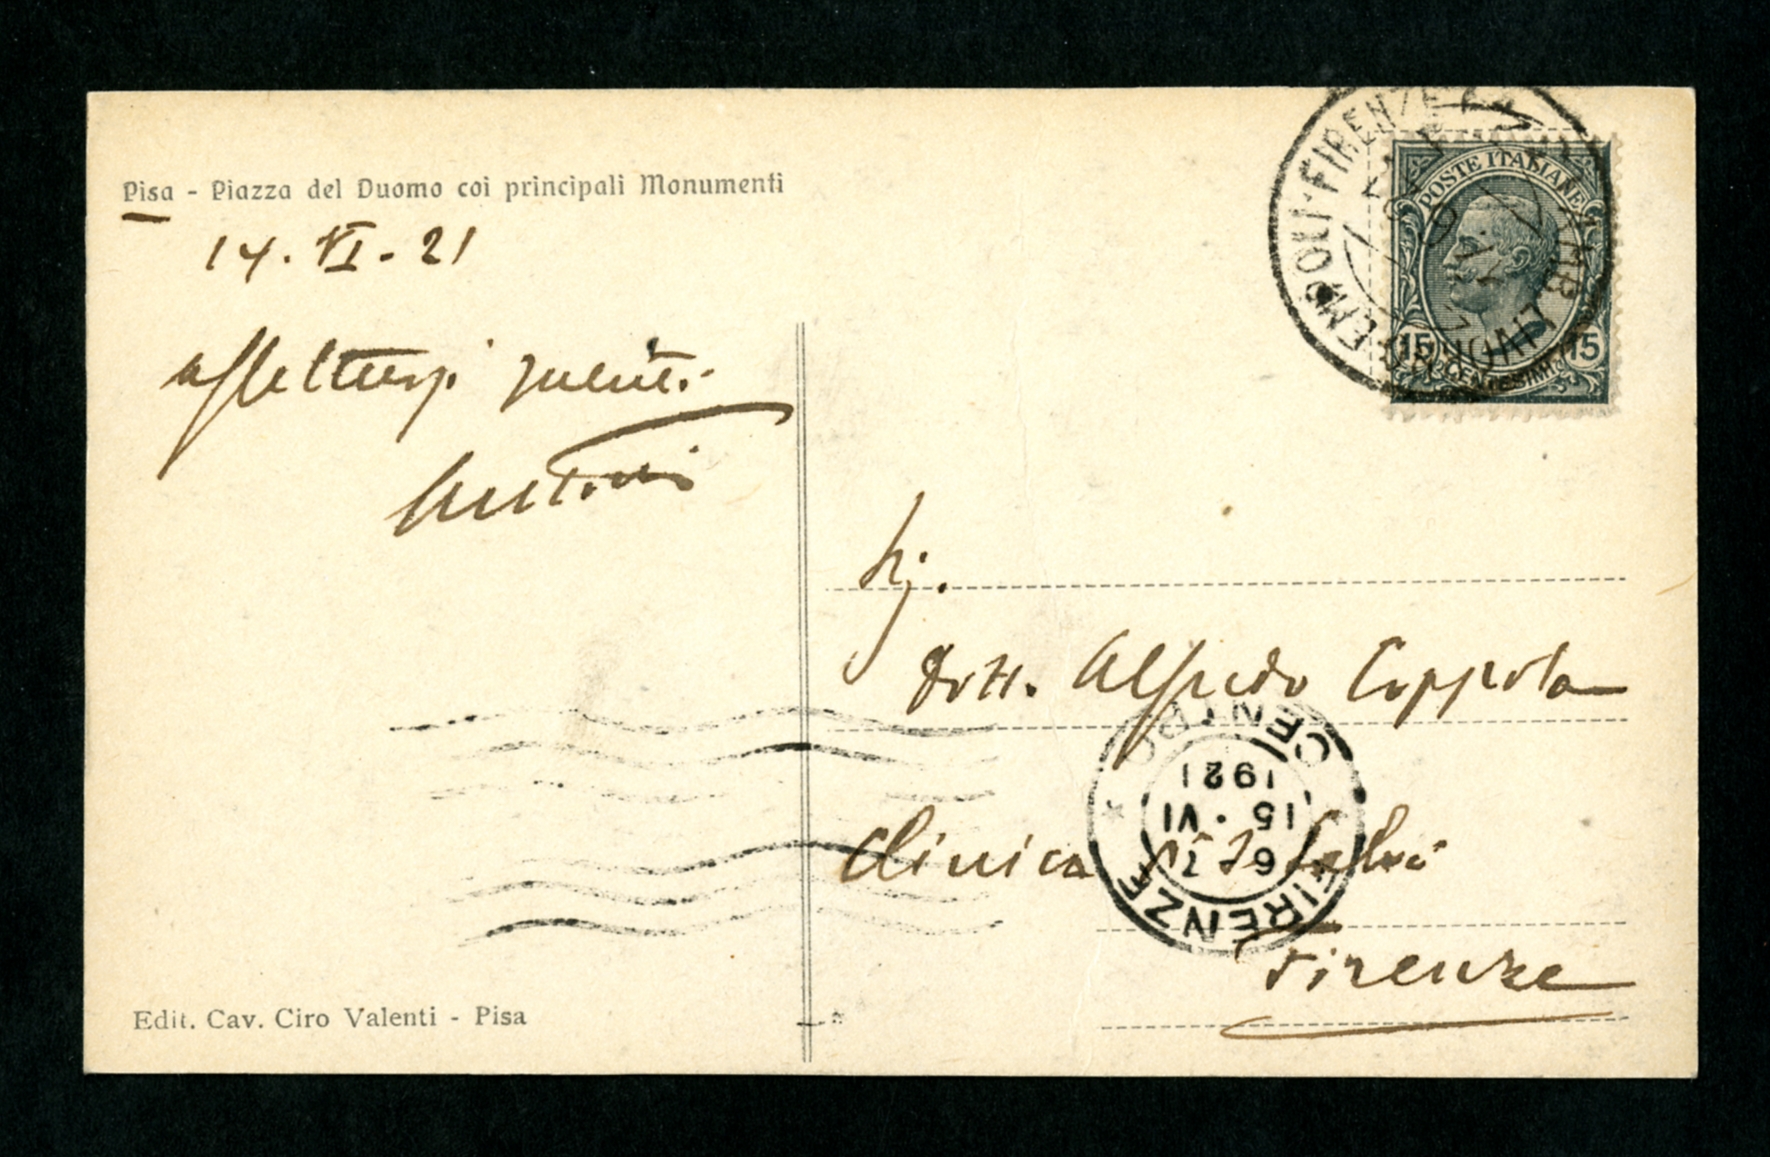 Pisa - Piazza del Duomo coi principali Monumenti
14. VI. 21
affettuosi saluti.
EMPOLI-FIRENZE
POSTE ITALIANE
15 CENTESIMI 15
Sig.
Dott. Alfredo Coppola
Clinica S. Salvi
Firenze
CENTRO
1921
15 · VI
6-7
FIRENZE
Edit. Cav. Ciro Valenti - Pisa